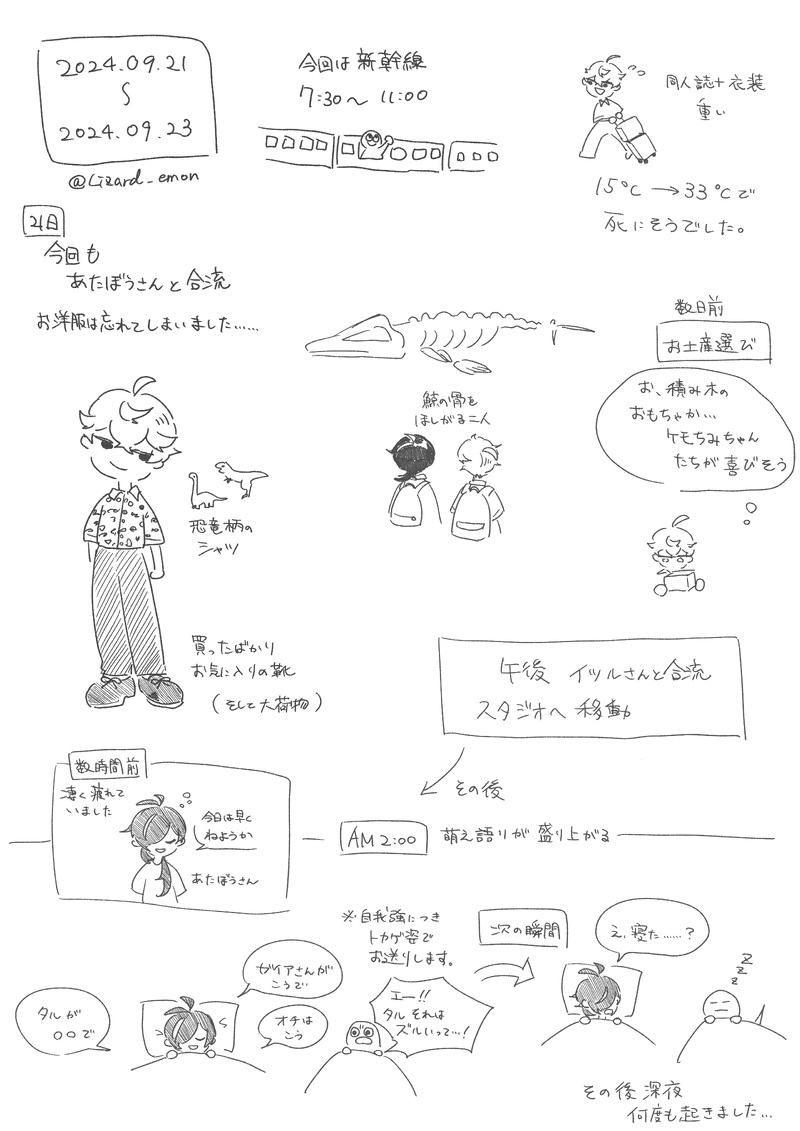 2024.09.21
〜
2024.09.23
@Lizard_emon
今回は新幹線
7:30〜 11:00
同人誌+衣装
重い
15℃→33℃で
死にそうでした。
21日
今回も
あたぼうさんと合流
お洋服は忘れてしまいました……
恐竜柄の
シャツ
買ったばかり
お気に入りの靴
(そして大荷物)
鯨の骨を
ほしがる二人
数日前
お土産選び
お、積み木の
おもちゃか…
ケモちみちゃん
たちが喜びそう
午後 イツルさんと合流
スタジオへ移動
その後
数時間前
凄く疲れて
いました
今日は早く
ねようか
あたぼうさん
AM 2:00
萌え語りが盛り上がる
タルが
〇〇で
ガイアさんが
こうで
オチは
こう
※自我強につき
トカゲ姿で
お送りします。
エー!!
タルそれは
ズルいって…!
次の瞬間
え、寝た……?
z
z
z
その後深夜
何度も起きました…